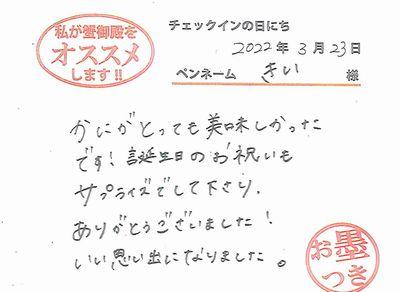 私が蟹御殿を
オススメ
します!!
チェックインの日にち
2022年3月23日
ペンネーム きい 様
かにがとっても美味しかった
です!誕生日のお祝いも
サプライズでして下さり、
ありがとうございました!
いい思い出になりました。
お墨
つき